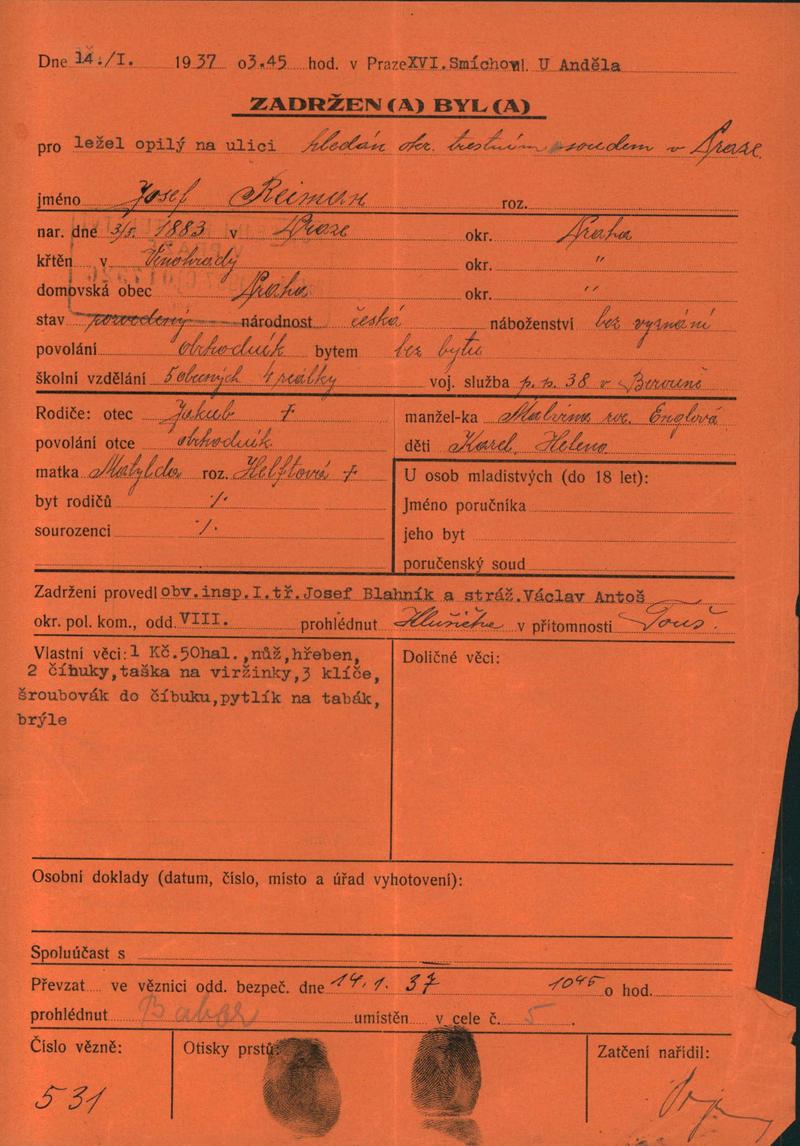 Dne 14./I. 1937 o 3.45 hod. v Praze XVI. Smíchov ul. U Anděla
ZADRŽEN(A) BYL(A)
pro ležel opilý na ulici hledán okr. trestním soudem v Praze.
jméno Josef Reiman roz.
nar. dne 3/5. 1883 v Praze okr. Praha
křtěn v Vinohrady okr. "
domovská obec Praha okr. "
stav národnost česká náboženství bez vyznání
povolání obchodník bytem bez bytu
školní vzdělání 5 obecných 4 reálky voj. služba p. p. 38 v Berouně
Rodiče: otec Jakub †
povolání otce obchodník
matka Matylda roz. Helftová †
byt rodičů ./.
sourozenci ./.
manžel-ka Malvina roz. Englová
děti Karel, Helena
U osob mladistvých (do 18 let):
Jméno poručníka
jeho byt
poručenský soud
Zadržení provedl obv.insp.I.tř.Josef Blahník a stráž.Václav Antoš
okr. pol. kom., odd. VIII. prohlédnut v přítomnosti Touš.
Vlastní věci: 1 Kč.50hal.,nůž,hřeben,
2 číbuky,taška na viržinky,3 klíče,
šroubovák do číbuku,pytlík na tabák,
brýle
Doličné věci:
Osobní doklady (datum, číslo, místo a úřad vyhotovení):
Spoluúčast s
Převzat ve věznici odd. bezpeč. dne 14.1. 37 10 45 o hod.
prohlédnut Babor umístěn v cele č. 5.
Číslo vězně:
531
Otisky prstů:
Zatčení nařídil: